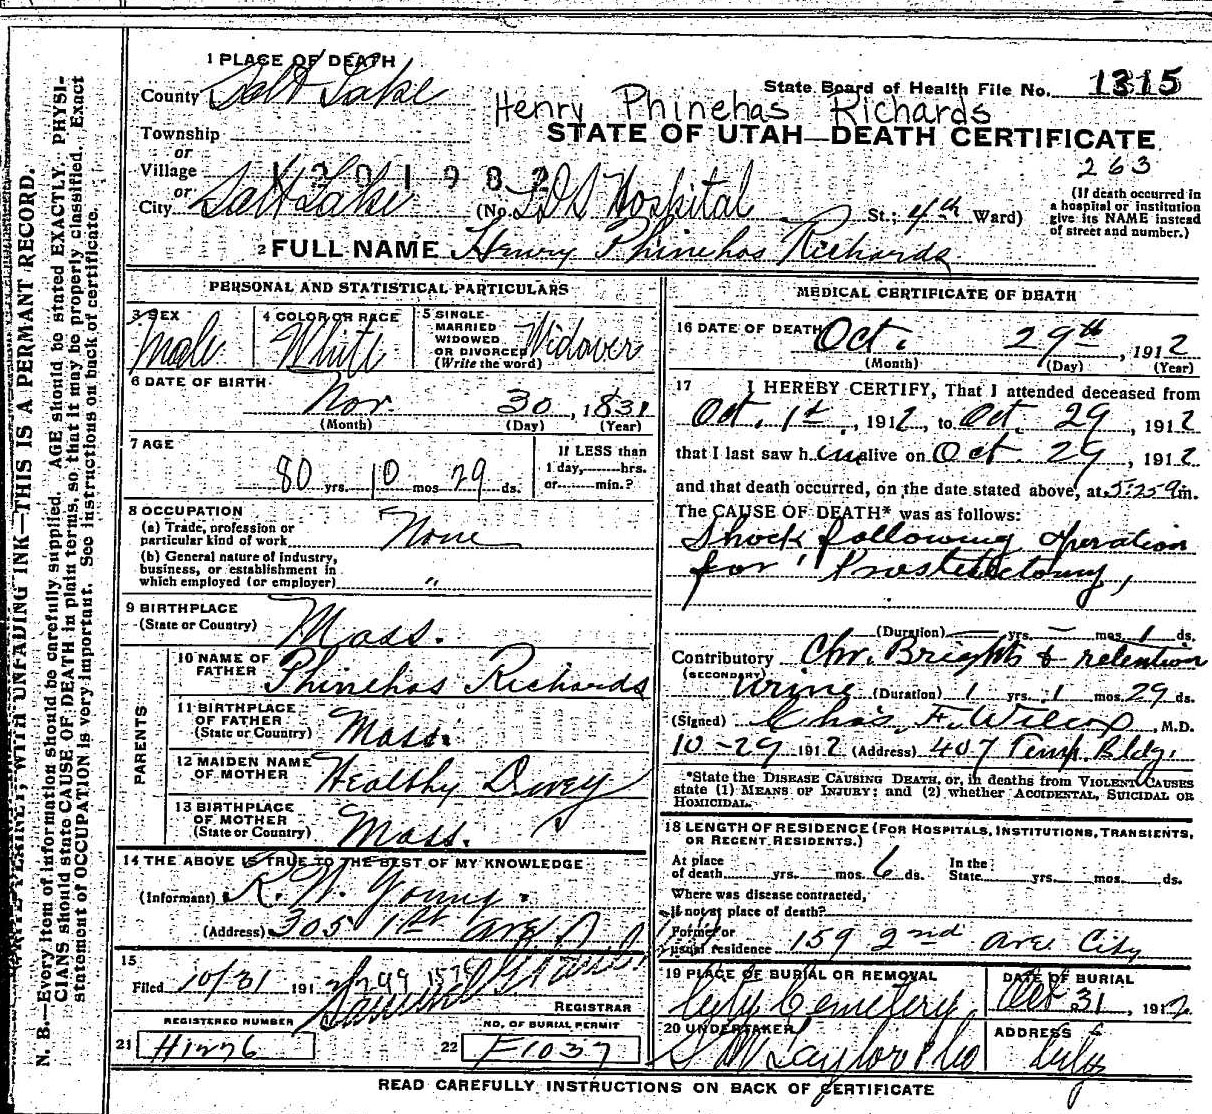 1 PLACE OF DEATH
County Salt Lake
State Board of Health File No. 1315
Henry Phinehas Richards
STATE OF UTAH—DEATH CERTIFICATE
263
Township
or
Village
or
City Salt Lake (No. LDS Hospital St.; 4th Ward)
(If death occurred in a hospital or institution give its NAME instead of street and number.)
2 FULL NAME Henry Phinehas Richards
PERSONAL AND STATISTICAL PARTICULARS
3 SEX Male
4 COLOR OR RACE White
5 SINGLE- MARRIED WIDOWED OR DIVORCED (Write the word) Widower
6 DATE OF BIRTH
Nov. 30, 1831
(Month) (Day) (Year)
7 AGE
80 yrs. 10 mos 29 ds.
If LESS than
1 day,........hrs.
or........min.?
8 OCCUPATION
(a) Trade, profession or
particular kind of work None
(b) General nature of industry,
business, or establishment in
which employed (or employer) "
9 BIRTHPLACE
(State or Country) Mass.
PARENTS
10 NAME OF
FATHER Phinehas Richards
11 BIRTHPLACE
OF FATHER
(State or Country) Mass.
12 MAIDEN NAME
OF MOTHER Wealthy Dewey
13 BIRTHPLACE
OF MOTHER
(State or Country) Mass.
14 THE ABOVE IS TRUE TO THE BEST OF MY KNOWLEDGE
(Informant) R. W. Young.
(Address) 305 1st Ave
15
Filed 10/31 191
REGISTRAR
REGISTERED NUMBER
21 H1276
NO. OF BURIAL PERMIT
22 F1037
MEDICAL CERTIFICATE OF DEATH
16 DATE OF DEATH Oct. 29th, 1912
(Month) (Day) (Year)
17 I HEREBY CERTIFY, That I attended deceased from
Oct. 1st, 1912, to Oct. 29, 1912
that I last saw him alive on Oct. 29, 1912
and that death occurred, on the date stated above, at 5:25 a m.
The CAUSE OF DEATH* was as follows:
Shock following operation
for "Prostatectomy,
(Duration) — yrs. — mos. 1 ds.
Contributory Chr. Brights & retention
(SECONDARY) urine (Duration) 1 yrs. 1 mos. 29 ds.
(Signed) Chas. F. Wilcox, M.D.
10-29 1912 (Address) 407 Temp. Bldg.
*State the DISEASE CAUSING DEATH, or, in deaths from VIOLENT CAUSES
state (1) MEANS OF INJURY; and (2) whether ACCIDENTAL, SUICIDAL OR
HOMICIDAL.
18 LENGTH OF RESIDENCE (FOR HOSPITALS, INSTITUTIONS, TRANSIENTS,
OR RECENT RESIDENTS.)
At place
of death........yrs........mos. 6 ds.
In the
State........yrs........mos........ds.
Where was disease contracted,
if not at place of death?
Former or
usual residence 159 2nd Ave City
19 PLACE OF BURIAL OR REMOVAL
City Cemetery
DATE OF BURIAL
Oct 31, 1912
20 UNDERTAKER
S M Taylor & Co
ADDRESS
City
READ CAREFULLY INSTRUCTIONS ON BACK OF CERTIFICATE
WRITE PLAINLY, WITH UNFADING INK—THIS IS A PERMANT RECORD.
N. B.—Every item of information should be carefully supplied. AGE should be stated EXACTLY. PHYSI-
CIANS should state CAUSE OF DEATH in plain terms, so that it may be properly classified. Exact
statement of OCCUPATION is very important. See instructions on back of certificate.